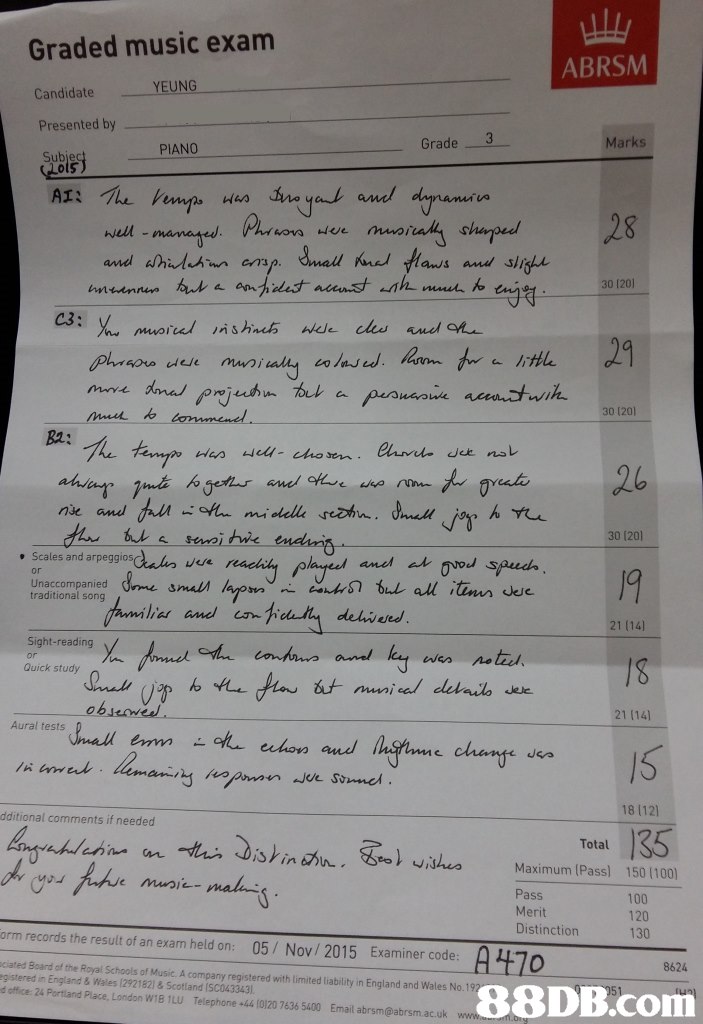 Graded music exam
ABRSM
Candidate YEUNG
Presented by
Subject PIANO Grade 3 Marks
(2015)
A1: The tempo was buoyant and dynamics
well-managed. Phrases were musically shaped 28
and articulation crisp. Small tonal flaws and slight
unevenness but a confident account with much to enjoy. 30 (20)
C3: Your musical instincts were clear and the
phrases were musically coloured. Room for a little 29
more tonal projection but a persuasive account with
much to commend. 30 (20)
B2: The tempo was well-chosen. Chords were not
always quite together and there was room for greater 26
rise and fall in the middle section. Small jogs to the
flow but a sensitive ending. 30 (20)
• Scales and arpeggios Scales were readily played and at good speeds.
or
Unaccompanied traditional song Some small lapses in control but all items were 19
familiar and confidently delivered. 21 (14)
Sight-reading You found the contours and key was noted.
or
Quick study Small jogs to the flow but musical details were 18
observed. 21 (14)
Aural tests Small errors in the echoes and rhythmic change was 15
incorrect. Remaining responses were sound. 18 (12)
dditional comments if needed Total 135
Congratulations on this Distinction. Best wishes Maximum (Pass) 150 (100)
for your future music-making. Pass 100
Merit 120
Distinction 130
orm records the result of an exam held on: 05 / Nov / 2015 Examiner code: A470 8624
ciated Board of the Royal Schools of Music. A company registered with limited liability in England and Wales No.192
egistered in England & Wales (292182) & Scotland (SC043343).
d office: 24 Portland Place, London W1B 1LU Telephone +44 (0)20 7636 5400 Email abrsm@abrsm.ac.uk
88DB.com